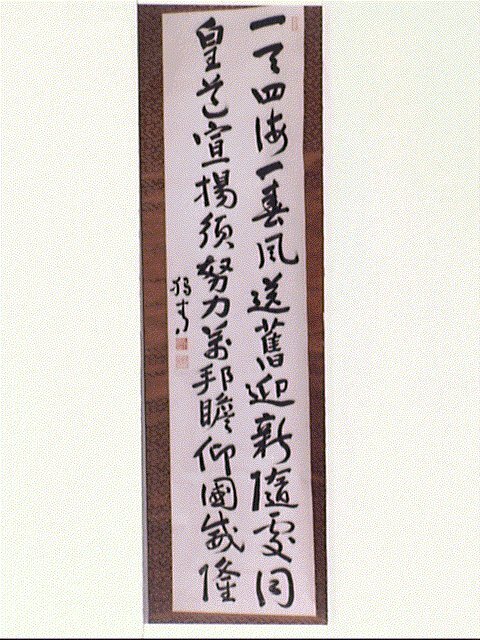 一天四海一春風送舊迎新隨處同
皇道宣揚須努力萬邦瞻仰國威隆